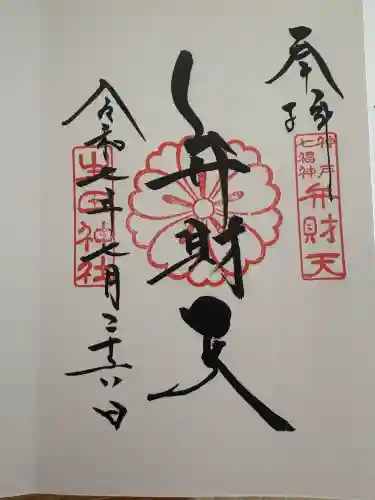 奉拝
神戸
七福神
弁財天
弁財天
生田神社
令和七年七月二十六日